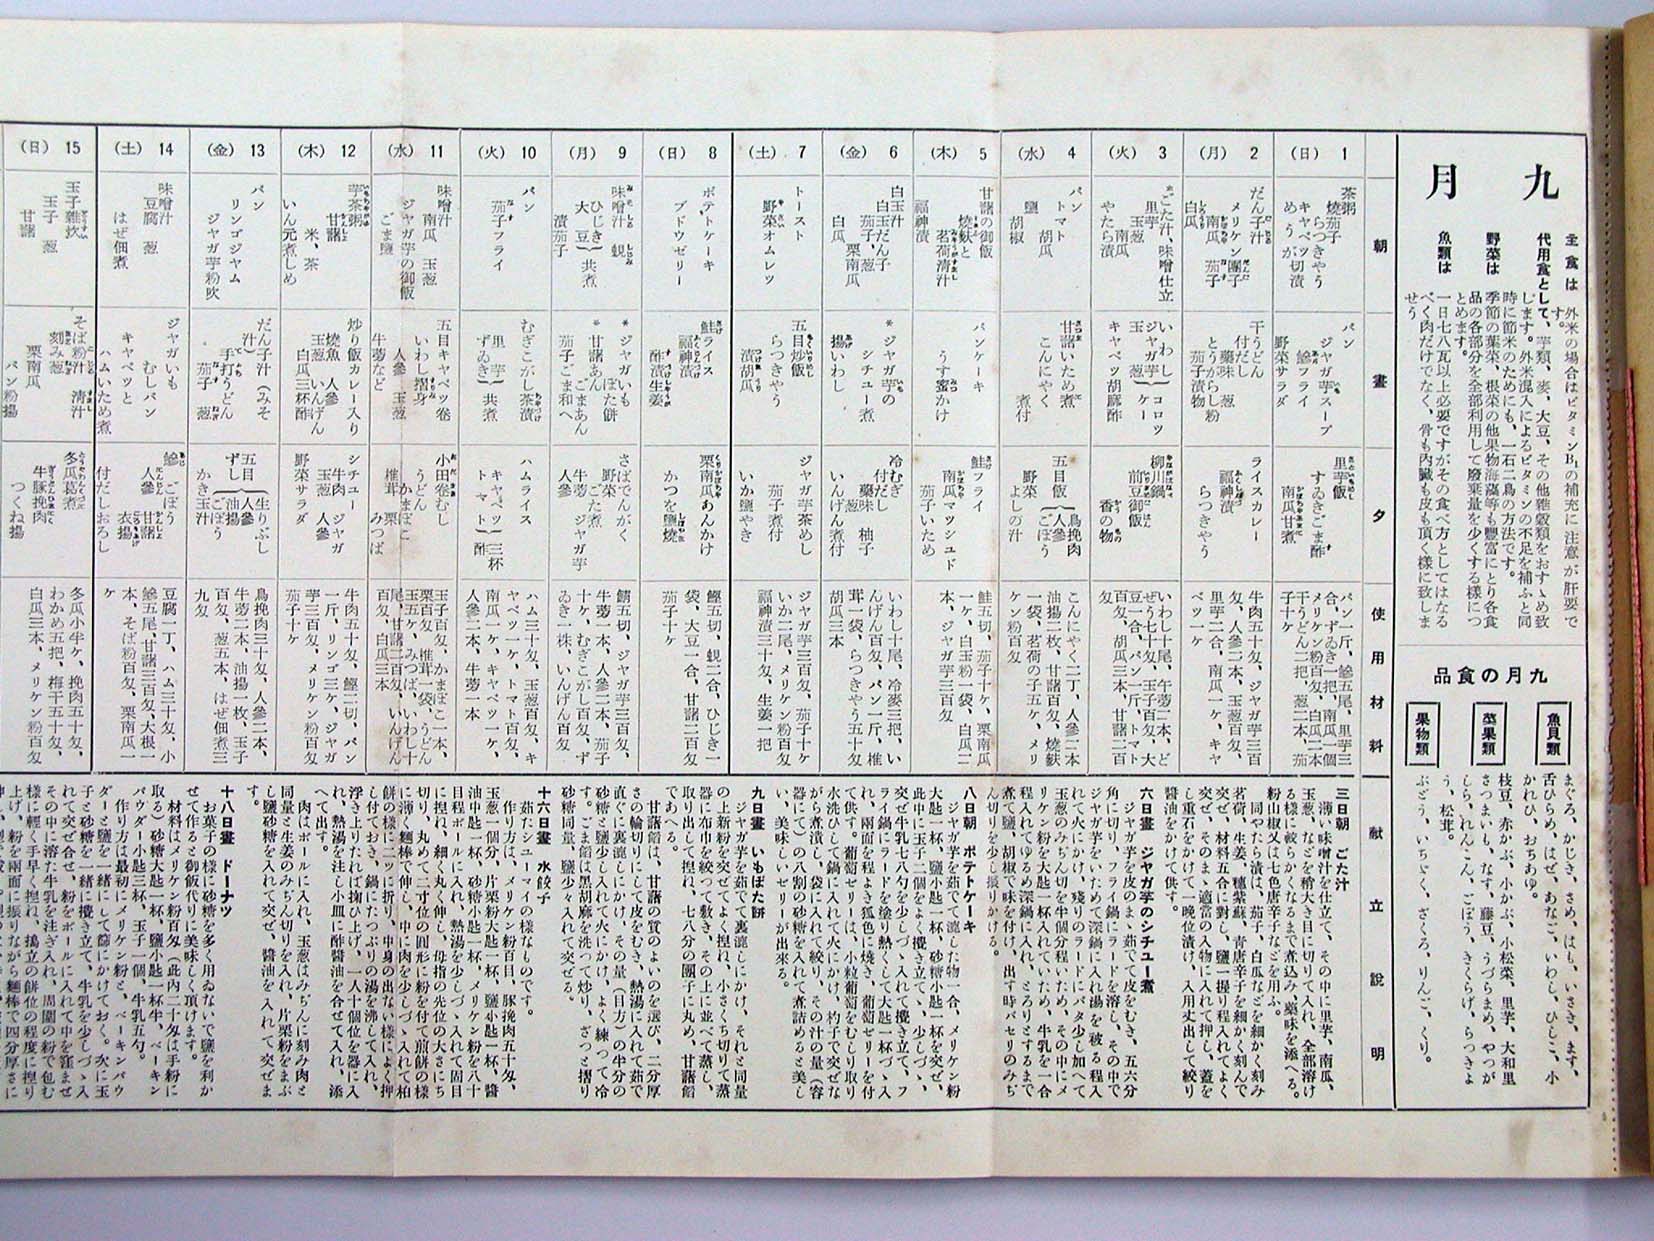 九月
主食は 外米の場合はビタミンB₁の補充に注意が肝要です。
代用食として、芋類、麦、大豆、その他雑穀類をおすゝめ致
します。外米混入によるビタミンの不足を補ふと同
時に節米のためにも、一石二鳥の方法です。
野菜は 季節の葉菜、根菜の他果物海藻等も豊富にとり各食
品の各部分を全部利用して廃棄量を少くする様につ
とめます。
魚類は 一日七八瓦以上必要ですがその食べ方としてはなる
べく肉だけでなく、骨も内臓も皮も頂く様に致しま
せう。
九月の食品
魚貝類
まぐろ、かじき、さめ、はも、いさき、ます、
舌ひらめ、はぜ、あなご、いわし、ひしこ、小
かれひ、おちあゆ。
菜果類
枝豆、赤かぶ、小かぶ、小松菜、里芋、大和里
さつまいも、なす、藤豆、うづらまめ、やつが
しら、れんこん、ごぼう、きくらげ、らつきよ
う、松茸。
果物類
ぶどう、いちぢく、ざくろ、りんご、くり。
朝
晝
夕
使用材料
献立説明
1(日)
茶粥
焼茄子
らつきやう
キャベツ切漬
めうが
パン
ジャガ芋スープ
鰺フライ
野菜サラダ
里芋飯
ずゐきごま酢
南瓜甘煮
パン一斤、鰺五尾、里芋三
合、ずゐき一把、南瓜一個
メリケン粉百匁、白瓜二本
干うどん二把、葱二本、茄
子十ケ
2(月)
だん子汁
メリケン團子
南瓜 茄子
白瓜
干うどん
付だし
薬味 葱
とうがらし粉
茄子漬物
ライスカレー
福神漬
らつきやう
牛肉五十匁、ジャガ芋三百
匁、人參三本、玉葱百匁、
里芋二合、南瓜一ケ、キャ
ベツ一ケ
3(火)
*ごた汁、味噌仕立
里芋
玉葱 南瓜
やたら漬
いわし
ジャガ芋
玉葱
コロツケー
キャベツ胡麻酢
柳川鍋
前豆御飯
香の物
いわし十尾、牛蒡二本、ど
ぜう七十匁、玉子百匁、大
豆一合、パン一斤、トマト
百匁、胡瓜三本、甘諸二百
匁
4(水)
パン
トマト
胡瓜
鹽 胡椒
甘諸いため煮
こんにやく
煮付
五目飯
鳥挽肉
人參
ごぼう
野菜
よしの汁
こんにやく二丁、人參二本
油揚二枚、甘諸百匁、焼麩
一袋、茗荷の子五ケ、メリ
ケン粉百匁
5(木)
甘諸の御飯
焼麩と
茗荷清汁
福神漬
パンケーキ
うす蜜かけ
鮭フライ
南瓜マツシユド
茄子いため
鮭五切、茄子十ケ、栗南瓜
一ケ、白玉粉一袋、白瓜二
本、ジャガ芋三百匁
6(金)
白玉汁
白玉だん子
茄子 葱
栗南瓜
白瓜
*ジャガ芋の
シチュー煮
揚いわし
冷むぎ
付だし
薬味 柚子
いんげん煮付
いわし十尾、冷麥三把、い
んげん百匁、パン一斤、椎
茸一袋、らつきやう五十匁
胡瓜三本
7(土)
トースト
野菜オムレツ
五目炒飯
らつきやう
漬胡瓜
ジャガ芋茶めし
茄子煮付
いか鹽やき
ジャガ芋三百匁、茄子十ケ
いか二尾、メリケン粉百匁
福神漬三十匁、生姜一把
8(日)
ポテトケーキ
ブドウゼリー
鮭ライス
福神漬
酢漬生姜
栗南瓜あんかけ
かつを鹽焼
鰹五切、蜆二合、ひじき一
袋、大豆一合、甘諸二百匁
茄子十ケ
9(月)
味噌汁 蜆
ひじき
大豆
共煮
漬茄子
*ジャガいも
ぼた餅
*甘諸あん
ごまあん
茄子ごま和へ
さばでんがく
野菜 ごた煮
牛蒡 ジャガ芋
人參
鯖五切、ジャガ芋三百匁、
牛蒡一本、人參二本、茄子
十ケ、むぎこがし百匁、ず
ゐき一株、いんげん百匁
10(火)
パン
茄子フライ
むぎこがし茶漬
里芋
ずゐき
共煮
ハムライス
キャベツ
トマト
三杯酢
ハム三十匁、玉葱百匁、キ
ヤベツ一ケ、トマト百匁、
南瓜一ケ、キャベツ一ケ、
人參二本、牛蒡一本
11(水)
味噌汁
南瓜 玉葱
ジャガ芋の御飯
ごま鹽
五目キャベツ巻
いわし摺身
人參 玉葱
牛蒡など
小田巻むし
うどん
かまぼこ
椎茸 栗
みつば
玉子百匁、かまぼこ一本、
栗百匁、椎茸一袋、うどん
玉五ケ、みつば、いわし十
尾、甘諸二百匁、いんげん
百匁、白瓜三本
12(木)
芋茶粥
甘諸
米、茶
いん元煮しめ
炒り飯カレー入り
焼魚 人參
玉葱 いんげん
白瓜三杯酢
シチュー
牛肉 ジャガ
玉葱 人參
野菜サラダ
牛肉五十匁、鰹二切、パン
一斤、リンゴ三ケ、ジャガ
芋三百匁、メリケン粉百匁
茄子十ケ
13(金)
パン
リンゴジャム
ジャガ芋粉吹
だん子汁(みそ
汁)
手打うどん
茄子 葱
五目ずし
人參 生りぶし
油揚 ごぼう
かき玉汁
鳥挽肉三十匁、人參二本、
牛蒡二本、油揚一枚、玉子
百匁、葱五本、はぜ佃煮三
九匁
14(土)
味噌汁
豆腐 葱
はぜ佃煮
ジャガいも
むしパン
キャベツと
ハムいため煮
鰺 ごぼう
人參 甘諸
衣揚
付だしおろし
豆腐一丁、ハム三十匁、小
鰺五尾、甘諸三百匁、大根一
本、そば粉百匁、栗南瓜一
ケ
15(日)
玉子雜炊
玉子 葱
甘諸
そば粉汁 清汁
刻み葱
栗南瓜
パン粉揚
冬瓜葛煮
牛豚挽肉
つくね揚
冬瓜小半ケ、挽肉五十匁、
わかめ五把、梅干五十匁、
白瓜三本、メリケン粉百匁
三日朝 ごた汁
薄い味噌汁を仕立て、その中に里芋、南瓜、
玉葱、などを稍大き目に切り入れ、全部溶け
る様に軟らかくなるまで煮込み、薬味を添へる。
粉山椒又は七色唐辛子などを用ふ。
同やたら漬は、茄子、白瓜などを細かく刻み
茗荷、生姜、穗紫蘇、青唐辛子を細かく刻んで
交ぜ、材料五合に對し、鹽一握り程入れてよく
交ぜ、そのまゝ適當の入物に入れて押し、蓋を
し重石をかけて一晩位漬け、入用丈出して絞り
醤油をかけて供す。
六日晝 ジャガ芋のシチユー煮
ジャガ芋を皮のまゝ茹でて皮をむき、五六分
角に切り、フライ鍋にラードを溶し、その中で
ジャガ芋をいためて深鍋に入れ湯を被る程入
れて火にかけ、殘りのラードにバタ少し加へて
玉葱のみぢん切を牛個分程いため、その中にメ
リケン粉を大匙一杯入れていため、牛乳を一合
程入れてゆるめ深鍋に入れ、とろりとするまで
煮て鹽、胡椒で味を付け、出す時パセリのみぢ
ん切りを少し振りかける。
八日朝 ポテトケーキ
ジャガ芋を茹でて漉した物一合、メリケン粉
大匙一杯、鹽小匙一杯、砂糖小匙一杯を交ぜ、
此中に玉子二個をよく攪き立てゝ、少しづゝ入れ
交ぜ牛乳七八勺を少しづゝ入れて攪き立て、フ
ライ鍋にラードを塗り熱くして大匙一杯づゝ入
れ、兩面を程よき狐色に焼き、葡萄ゼリーを付
て供す。葡萄ゼリーは、小粒葡萄をむしり取り
水洗ひして鍋に入れて火にかけ、杓子で交ぜな
がら煮漬し、袋に入れて絞り、その汁の量(容
器にて)の八割の砂糖を入れて煮詰めると美し
い、美味しいゼリーが出來る。
九日晝 いもぼた餅
ジャガ芋を茹でて裏漉しにかけ、それと同量
の上新粉を交ぜてよく捏ね、小さくち切りて蒸
器に布巾を絞つて敷き、その上に並べて蒸し、
取り出して捏ね、七八分の團子に丸め、甘諸餡
であへる。
甘諸餡は、甘諸の質のよいのを選び、二分厚
さの輪切りにして皮をむき、熱湯に入れて茹で
直ぐに裏漉しにかけ、その量(目方)の半分の
砂糖と鹽少し入れて火にかけ、よく練つて冷
す。ごま餡は黒胡麻を洗つて炒り、ざつと摺り
砂糖同量、鹽少々入れて交ぜる。
十六日晝 水餃子
茹たシユーマイの様なものです。
作り方は、メリケン粉百目、豚挽肉五十匁、
玉葱一個分、片栗粉大匙一杯、鹽小匙一杯、醤
油中匙一杯、砂糖小匙一杯、メリケン粉を八十
目程ボールに入れ、熱湯を少しづゝ入れて固目
に捏ね、細く丸く伸し、母指の先位の大さにち
切り、丸めて二寸位の圓形に粉を付て煎餅の様
に薄く麺棒で伸し、中に肉を少しづゝ入れて柏
餅の様に二ツに折り、中身の出ない様によく押
し付ておき、鍋にたつぷりの湯を沸して入れ、
浮き上りたれば掬ひ上げ、一人十個位を器に入
れ、熱湯を注し小皿に酢醤油を合せて入れ、添
へて出す。
肉はボールに入れ、玉葱はみぢんに刻み肉と
同量と生姜のみぢん切りを入れ、片栗粉をまぶ
し鹽砂糖を入れて交ぜ、醤油を入れて交ぜま
十八日晝 ドーナツ
お菓子の様に砂糖を多く用ゐないで鹽を利か
せて作ると御飯代りに美味しく頂けます。
材料はメリケン粉百匁(此内二十匁は手粉に
取る)砂糖大匙一杯、鹽小匙一杯半、ベーキン
パウダー小匙三杯、玉子一個、牛乳五勺。
作り方は最初にメリケン粉と、ベーキンパウ
ダーと鹽を一緒にして篩にかけておく。次に玉
子と砂糖を一緒に攪き立て、牛乳を少しづゝ入
れて交ぜ合せ、粉をボールに入れて中を窪ませ
その中に溶た牛乳を注ぎ入れ、周圍の粉で包む
様に輕く手早く捏ね、搗立の餅位の程度に捏り
上げ、粉を兩面に振りながら麺棒で四分厚さに